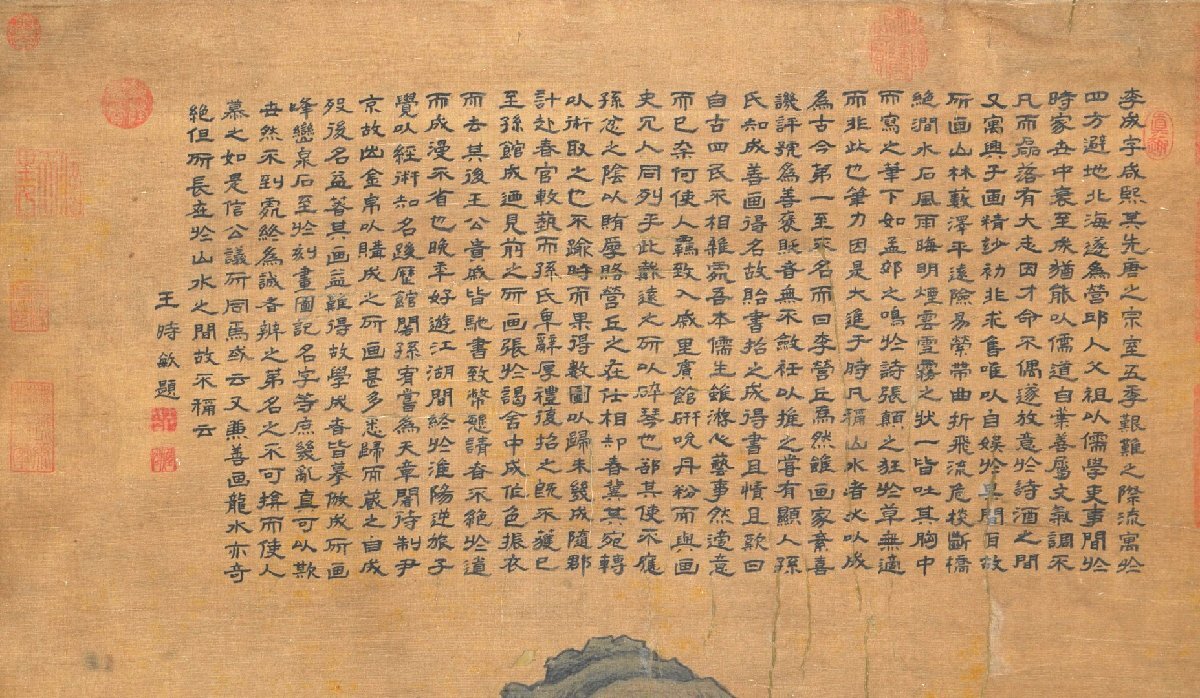 李成字咸熙其先唐之宗室五季艱難之際流寓於
四方避地北海遂爲營邱人父祖以儒學吏事聞於
時家世中衰至成猶能以儒道自業善屬文氣調不
凡而磊落有大志因才命不偶遂放意於詩酒之間
又寓興于画精妙初非求售唯以自娛於其間耳故
所画山林藪澤平遠險易縈帶曲折飛流危棧斷橋
絶澗水石風雨晦明煙雲雪霧之狀一皆吐其胸中
而寫之筆下如孟郊之鳴於詩張顛之狂於草無適
而非此也筆力因是大進于時凡稱山水者必以成
爲古今第一至不名而曰李營丘焉然雖画家素喜
譏評號爲善褒貶者無不斂衽以推之嘗有顯人孫
氏知成善画得名故貽書招之成得書且憤且歎曰
自古四民不相雜處吾本儒生雖游心藝事然適意
而已奈何使人羈致入戚里賓館研吮丹粉而與画
史冗人同列乎此戴逵之所以碎琴也却其使不應
孫忿之陰以賄厚賂營丘之在仕相却者冀其宛轉
以術取之也不踰時而果得數圖以歸未幾成隨郡
計赴春官較藝而孫氏卑辭厚禮復招之既不獲已
至孫館成迺見前之所画張於謁舍中成作色振衣
而去其後王公貴戚皆馳書致幣懇請者不絶於道
而成漫不省也晚年好遊江湖間終於淮陽逆旅子
覺以經術知名踐歷館閣孫宥嘗爲天章閣待制尹
京故出金帛以購成之所画甚多悉歸而藏之自成
歿後名益著其画益難得故學成者皆摹倣成所画
峰巒泉石至於刻畫圖記名字等庶幾亂真可以欺
世然不到處終爲識者辨之第名之不可揜而使人
慕之如是信公議所同焉或云又兼善画龍水亦奇
絶但所長在於山水之間故不稱云
王時敏題